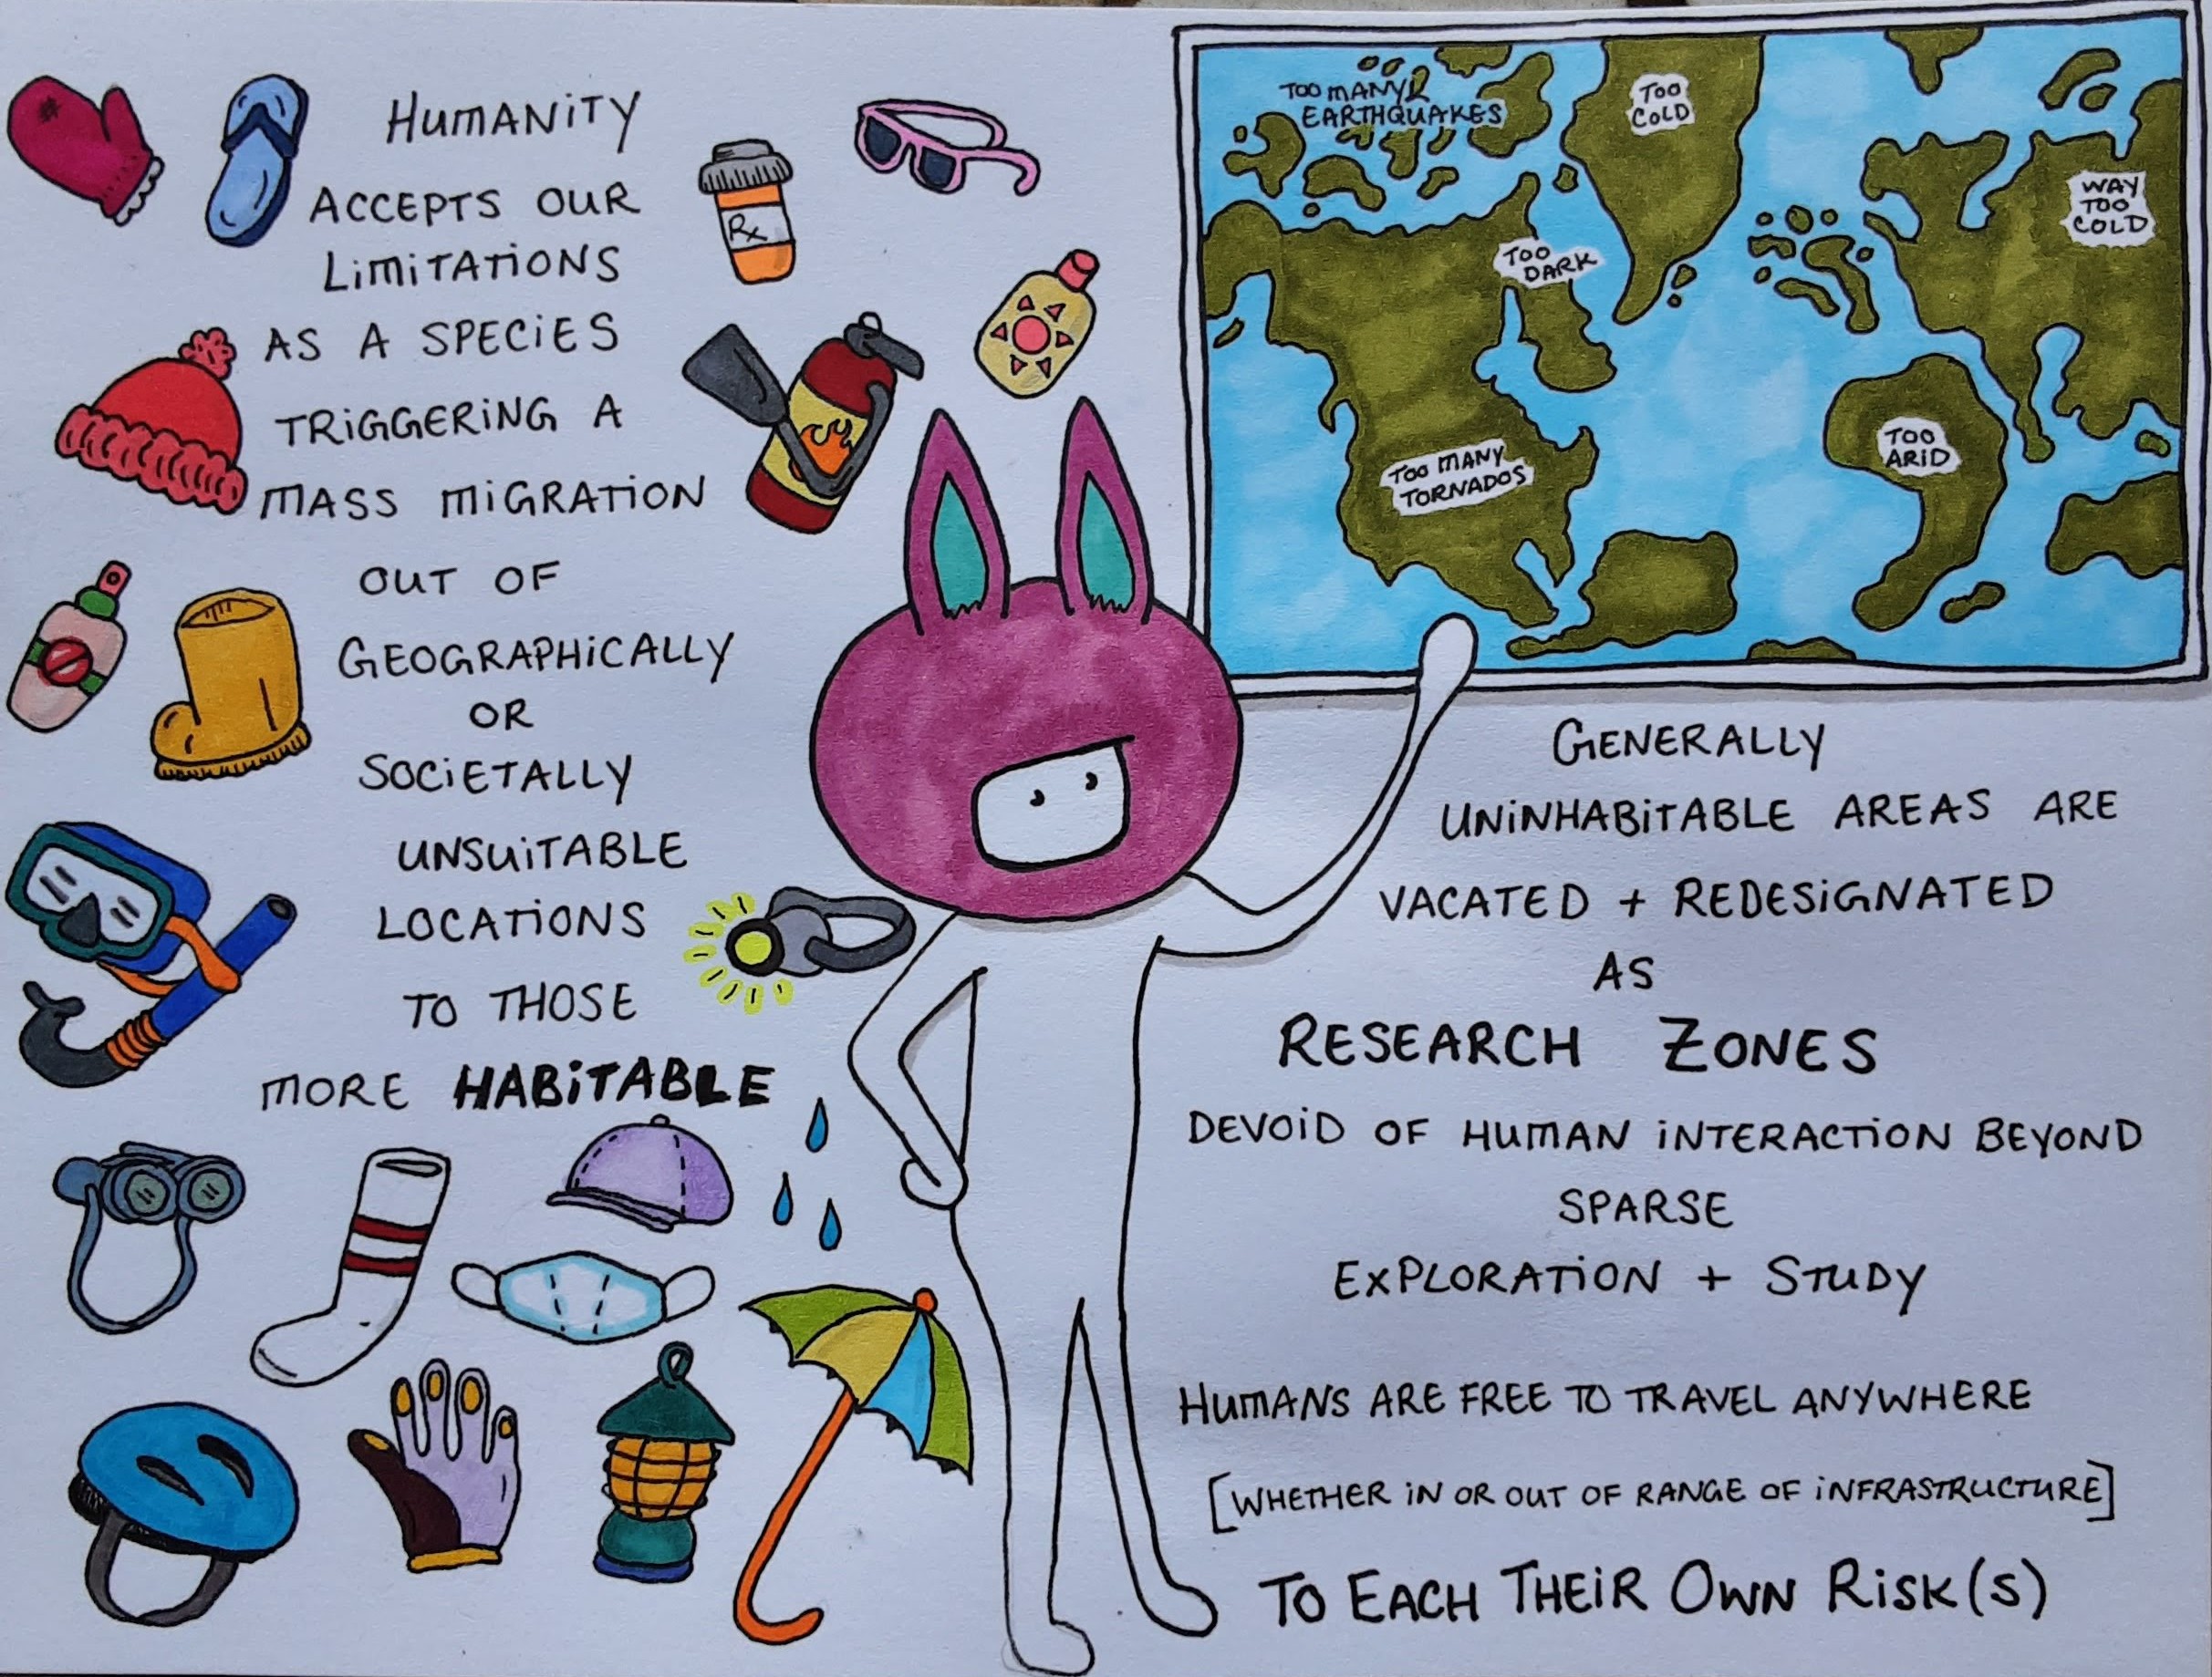 HUMANITY
ACCEPTS OUR
LIMITATIONS
AS A SPECIES
TRIGGERING A
MASS MIGRATION
OUT OF
GEOGRAPHICALLY
OR
SOCIETALLY
UNSUITABLE
LOCATIONS
TO THOSE
MORE HABITABLE
Rx
TOO MANY
EARTHQUAKES
TOO
COLD
WAY
TOO
COLD
TOO
DARK
TOO
ARID
TOO MANY
TORNADOS
GENERALLY
UNINHABITABLE AREAS ARE
VACATED + REDESIGNATED
AS
RESEARCH ZONES
DEVOID OF HUMAN INTERACTION BEYOND
SPARSE
EXPLORATION + STUDY
HUMANS ARE FREE TO TRAVEL ANYWHERE
[WHETHER IN OR OUT OF RANGE OF INFRASTRUCTURE]
TO EACH THEIR OWN RISK(S)